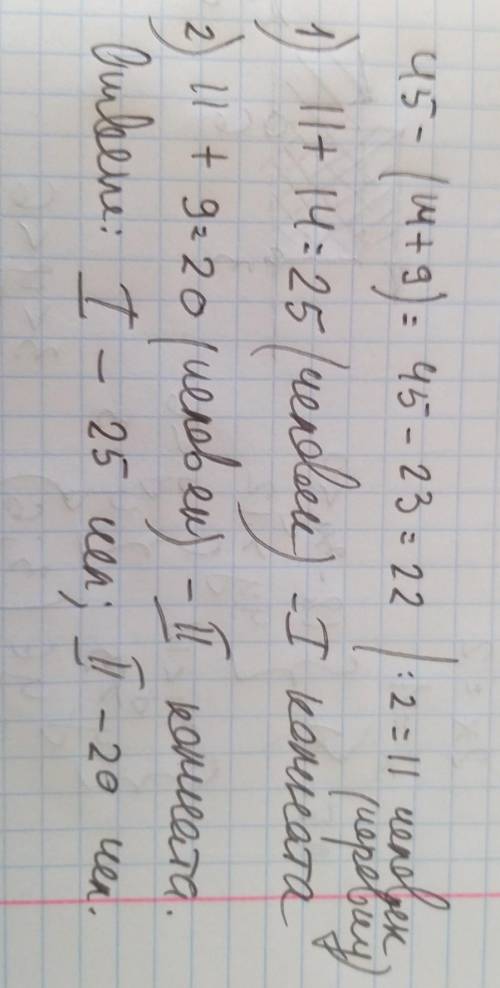 45 - (14 + 9) = 45 - 23 = 22 | : 2 = 11 человек
(поровну)
1) 11 + 14 = 25 (человек) - I комната
2) 11 + 9 = 20 (человек) - II комната.
Ответ: I - 25 чел; II - 20 чел.